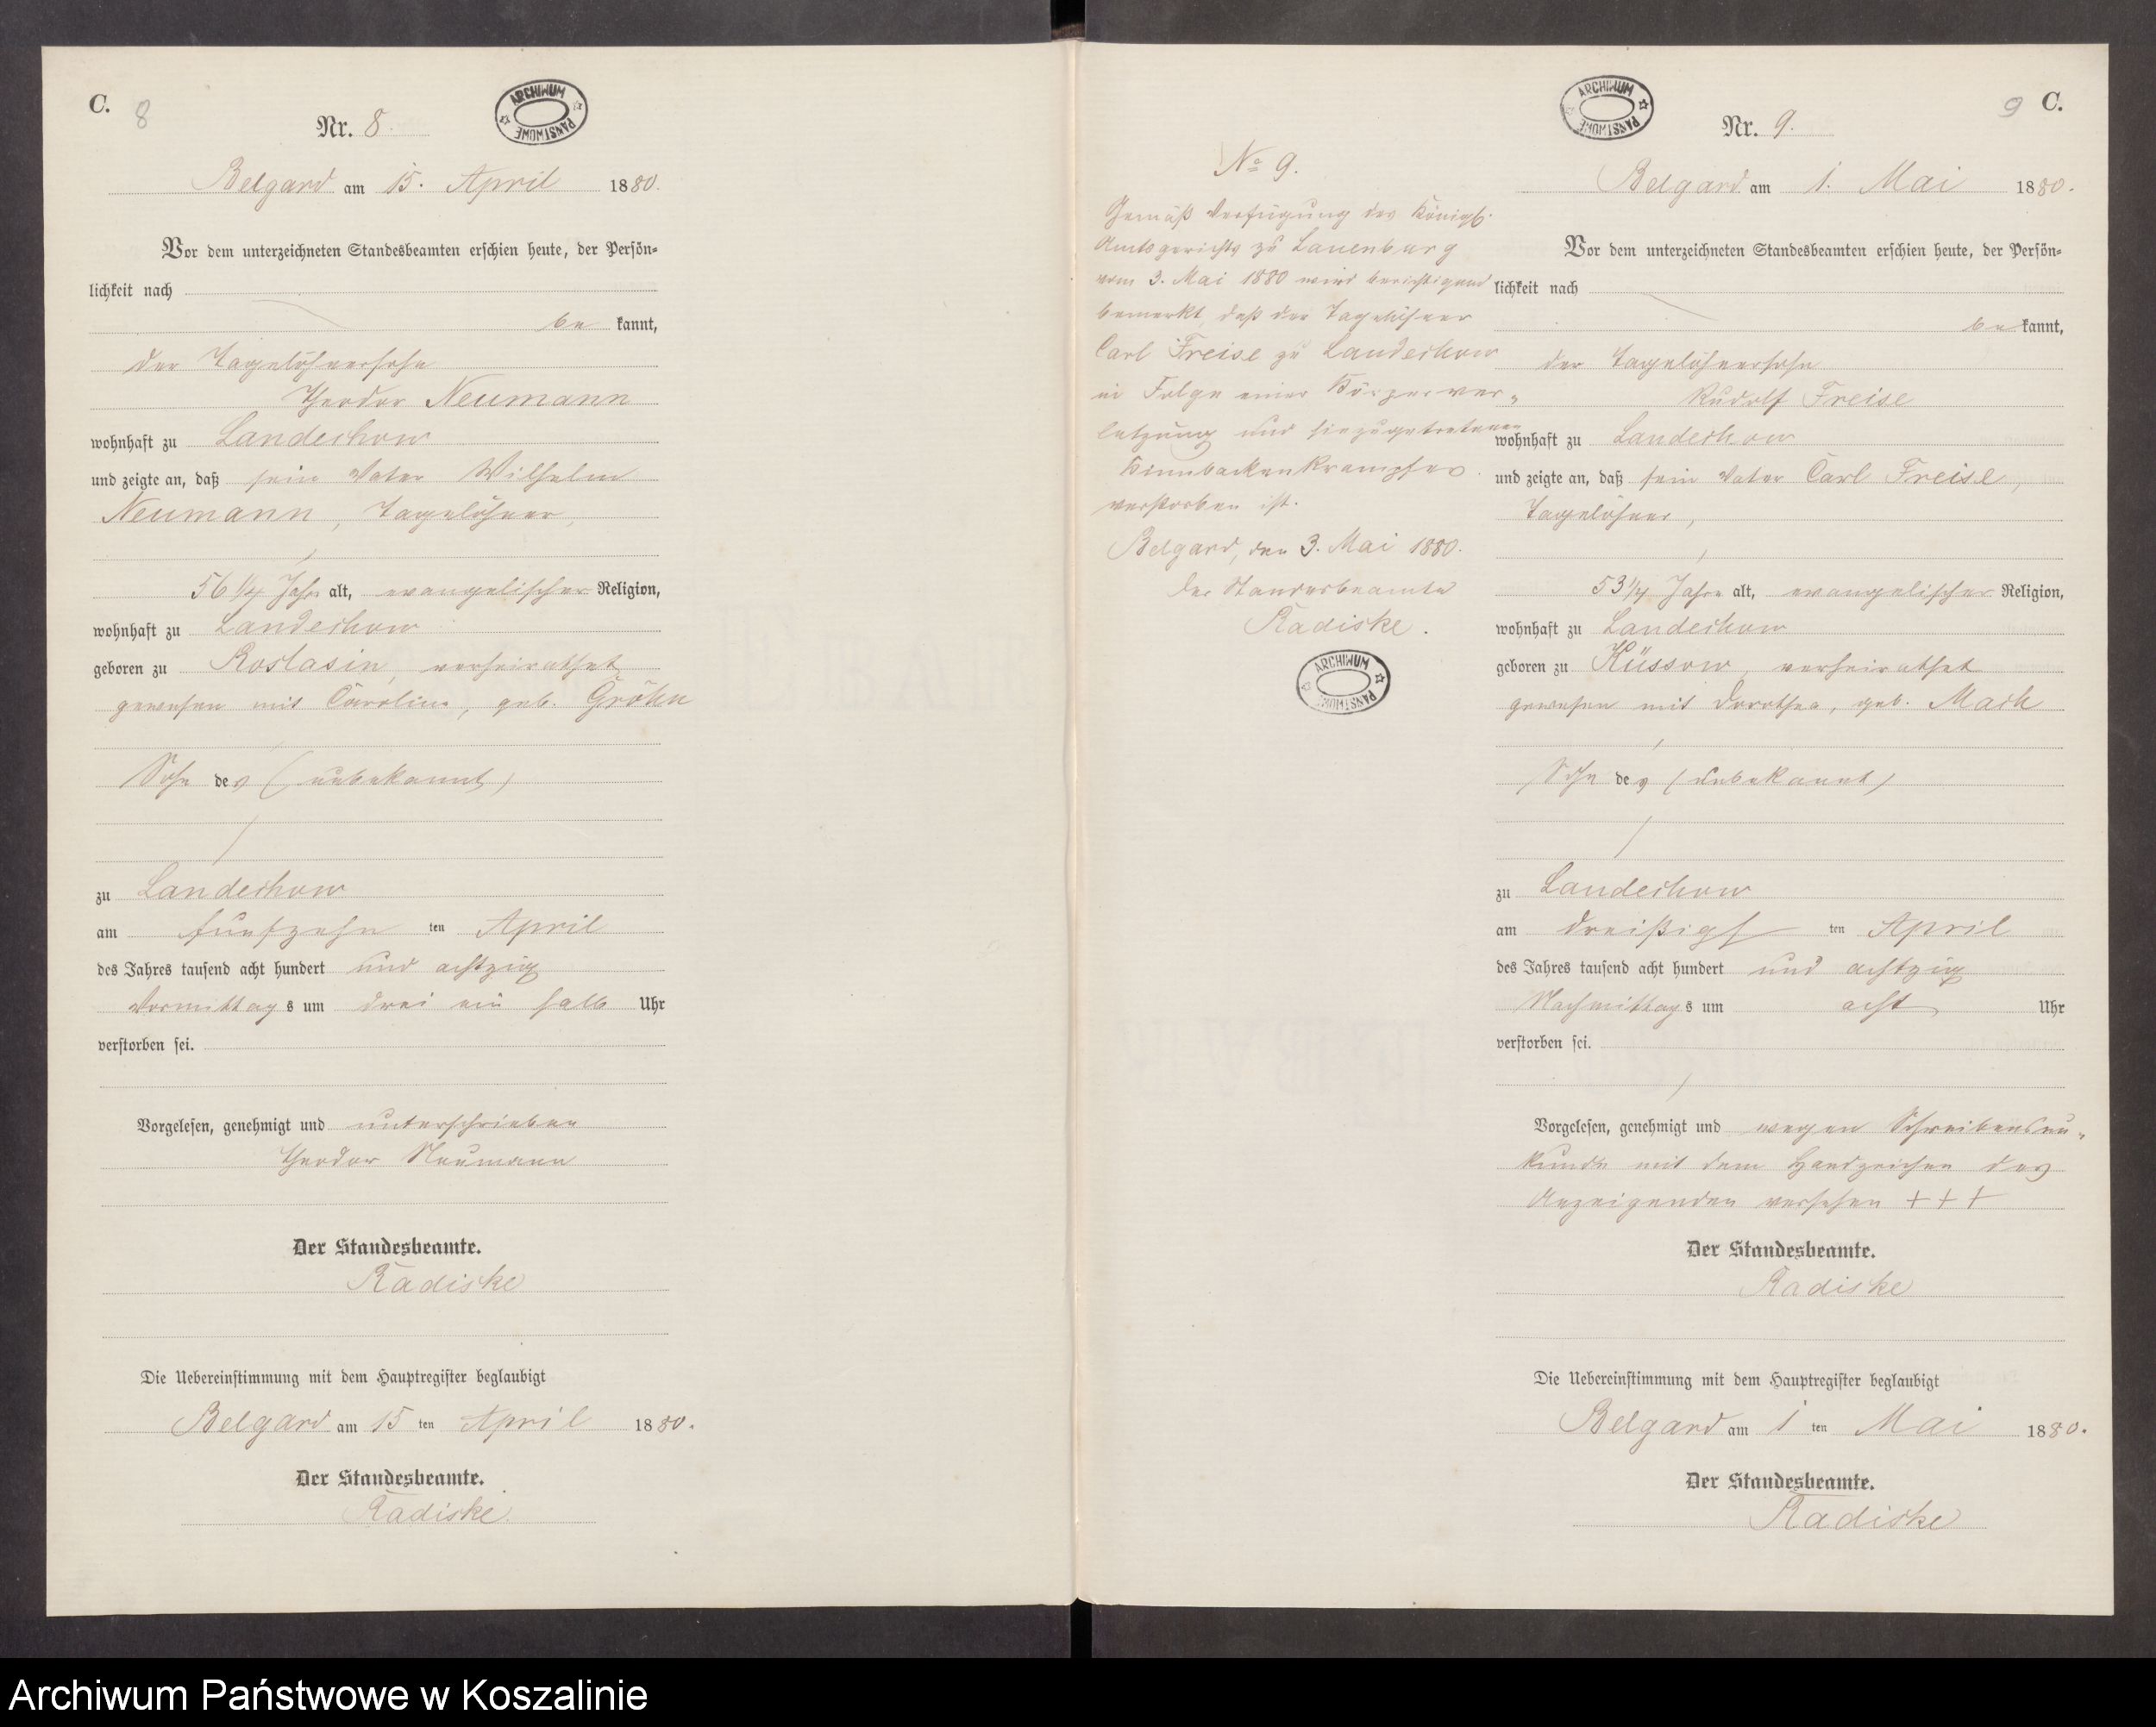 C.
8
Nr. 8.
ARCHIWUM PAŃSTWOWE
Belgard am 15. April 1880.
Vor dem unterzeichneten Standesbeamten erschien heute, der Persön-
lichkeit nach
be kannt,
der Tagelöhnersohn
Theodor Neumann
wohnhaft zu Landechow
und zeigte an, daß sein Vater Wilhelm
Neumann, Tagelöhner,
56 1/4 Jahre alt, evangelischer Religion,
wohnhaft zu Landechow
geboren zu Roslasin, verheirathet
gewesen mit Caroline, geb. Gröhn
Sohn des (unbekannt)
zu Landechow
am fünfzehn ten April
des Jahres tausend acht hundert und achtzig
Vormittags um drei ein halb Uhr
verstorben sei.
Vorgelesen, genehmigt und unterschrieben
Theodor Neumann
Der Standesbeamte.
Radiske
Die Uebereinstimmung mit dem Hauptregister beglaubigt
Belgard am 15 ten April 1880.
Der Standesbeamte.
Radiske
No 9.
Gemäß Verfügung des Königl.
Amtsgerichts zu Lauenburg
vom 3. Mai 1880 wird berichtigend
bemerkt, daß der Tagelöhner
Carl Freise zu Landechow
in Folge einer Körperver-
letzung und hinzugetretenen
Kinnbackenkrampfes
verstorben ist.
Belgard, den 3. Mai 1880.
Der Standesbeamte
Radiske.
ARCHIWUM PAŃSTWOWE
ARCHIWUM PAŃSTWOWE
9 C.
Nr. 9.
Belgard am 1. Mai 1880.
Vor dem unterzeichneten Standesbeamten erschien heute, der Persön-
lichkeit nach
be kannt,
der Tagelöhnersohn
Rudolf Freise
wohnhaft zu Landechow
und zeigte an, daß sein Vater Carl Freise,
Tagelöhner,
53 1/4 Jahre alt, evangelischer Religion,
wohnhaft zu Landechow
geboren zu Küssow, verheirathet
gewesen mit Dorothea, geb. Mach
Sohn des (unbekannt)
zu Landechow
am dreißigst ten April
des Jahres tausend acht hundert und achtzig
Nachmittags um acht Uhr
verstorben sei.
Vorgelesen, genehmigt und wegen Schreibensun-
kunde mit dem Handzeichen des
Anzeigenden versehen + + +
Der Standesbeamte.
Radiske
Die Uebereinstimmung mit dem Hauptregister beglaubigt
Belgard am 1 ten Mai 1880.
Der Standesbeamte.
Radiske
Archiwum Państwowe w Koszalinie